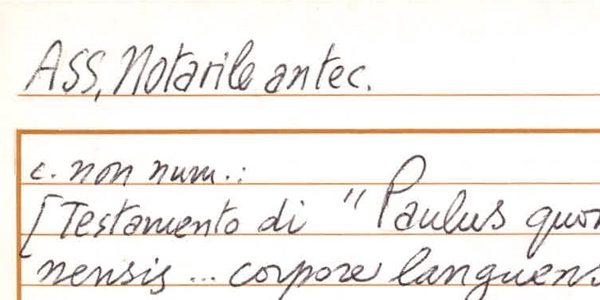 ASS, Notarile antec.
c. non num.:
[Testamento di "Paulus quon
nensis ... corpore languens